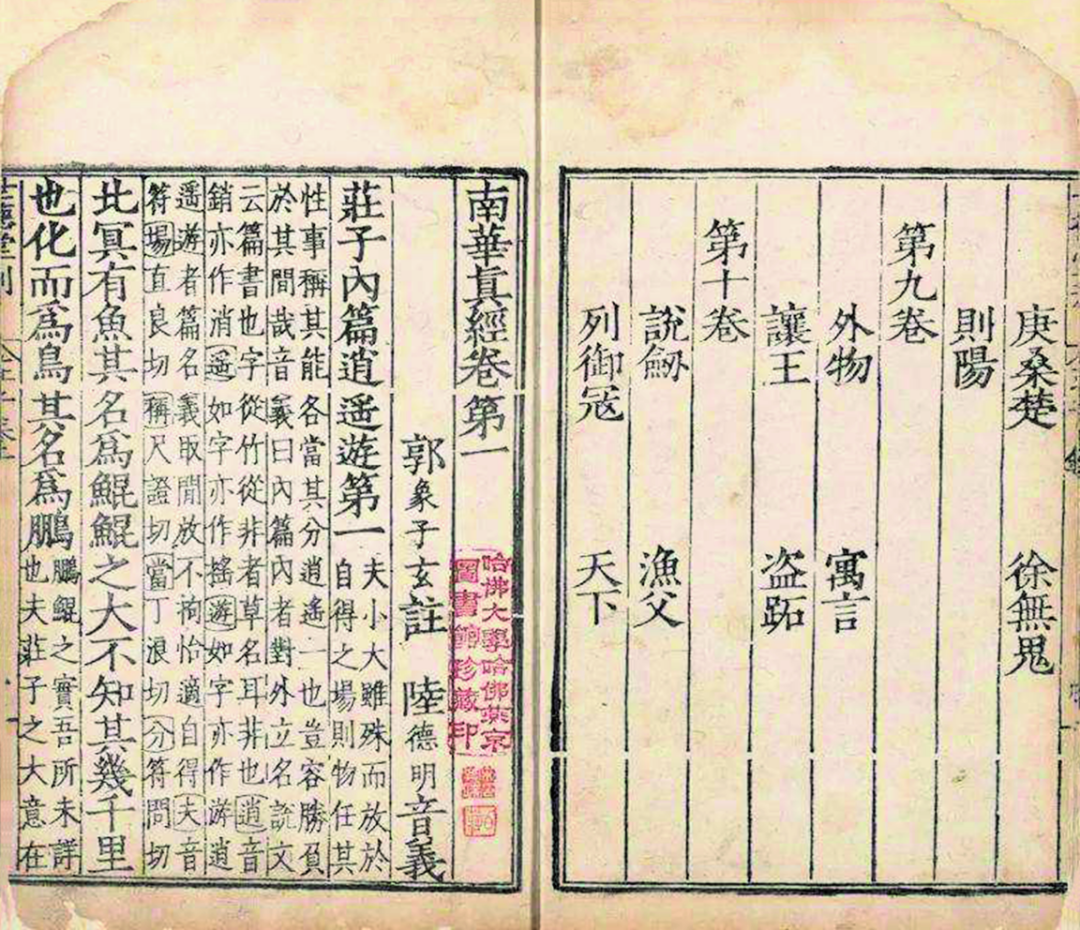 庚桑楚 徐無鬼
則陽
第九卷
外物 寓言
讓王 盗跖
第十卷
說劔 漁父
列御宼 天下
南華眞經卷第一
郭象子玄註 陸德明音義
莊子內篇逍遥遊第一 夫小大雖殊而放於
自得之場則物任其
性事稱其能各當其分逍遙一也豈容勝負
於其間哉音義曰內篇內者對外立名說文
云篇書也字從竹從非者草名耳非也逍音
銷亦作消遥如字亦作摇遊如字亦作游逍
遥遊者篇名義取閒放不拘怡適自得夫音
符場直良切稱尺證切當丁浪切分符問切
北冥有魚其名爲鯤鯤之大不知其幾千里
也化而爲鳥其名爲鵬 鵬鯤之實吾所未詳
也夫莊子之大意在
世德堂刊
哈佛大學哈佛燕京
圖書館珍藏印